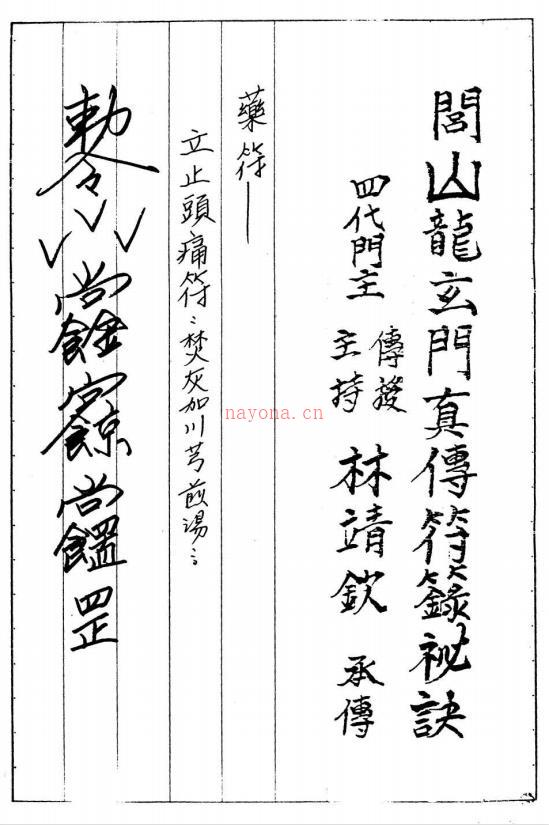 閭山龍玄門真傳符籙祕訣
四代門主
傳授
主持
林靖欽 承傳
藥符—
立止頭痛符：焚灰加川芎煎湯：
敕令
罡
nayona.cn